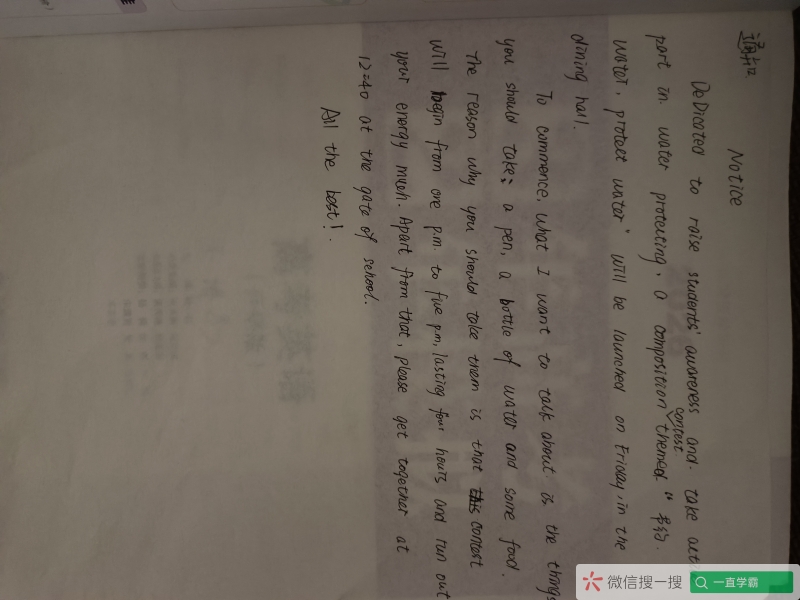 通知
Notice
DeDicated to raise students' awareness and take
part in water protecting, a composition contest themed "节约
water, protect water" will be launched on Friday, in the
dining hall.
To commence, what I want to talk about is the things
you should take: a pen, a bottle of water and some food.
The reason why you should take them is that this contest
will begin from one p.m. to five p.m, lasting four hours and run out
your energy much. Apart from that, please get together at
12:40 at the gate of school.
All the best!
微信搜一搜
一直学霸